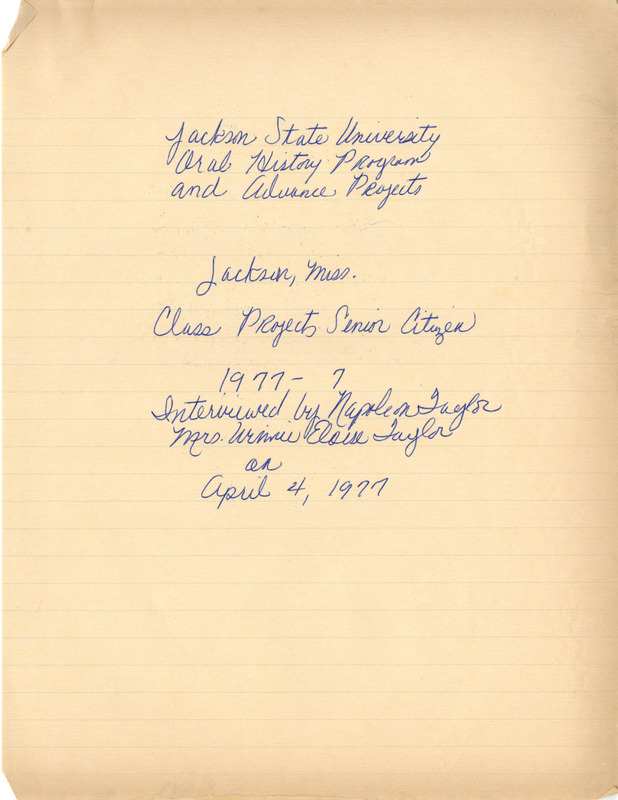 Jackson State University
Oral History Program
and Advance Projects
Jackson, Miss.
Class Projects Senior Citizen
1977- 7
Interviewed by Napoleon Taylor
Mrs. Eloise Taylor
on
April 4, 1977